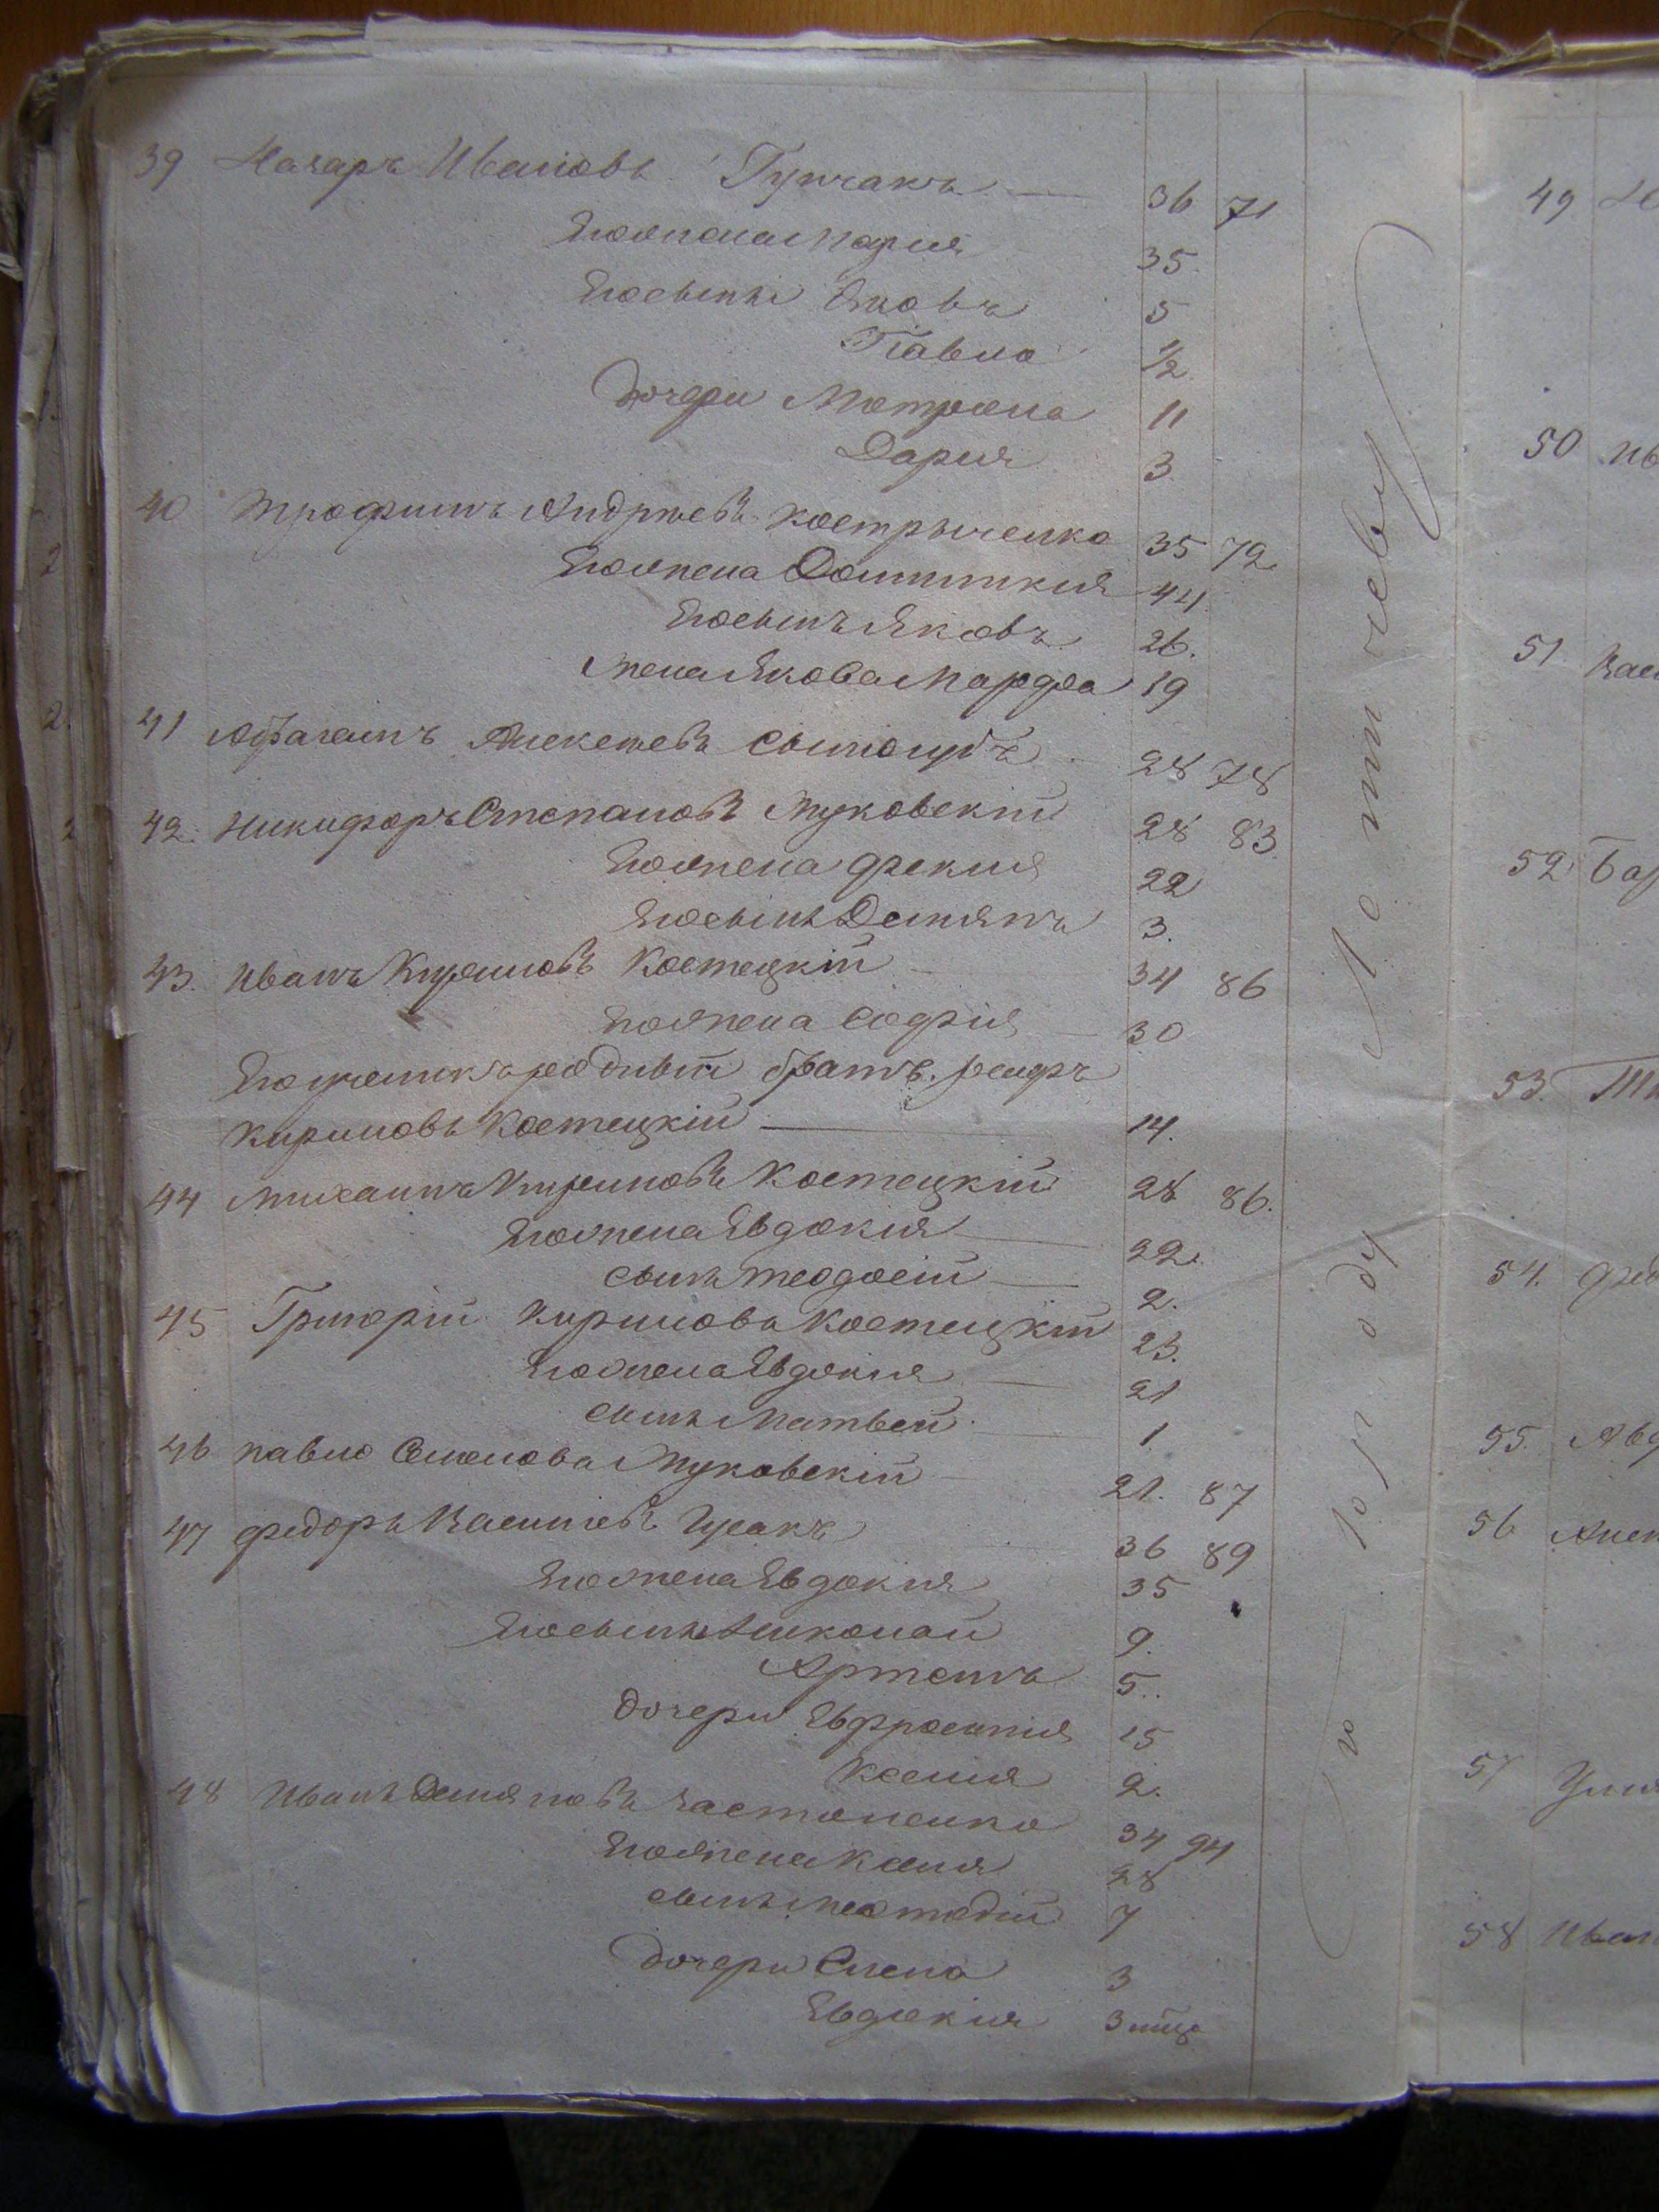 39 Назаръ Ивановъ Гупчакъ 36 71
Его жена Мария 35.
Его сыны Яковъ 5
Павло 1/2.
Дочери Матрона 11
Дария 3
40 Трофимъ Андреевъ Костръченко 35 72.
Его жена Домникия 44.
Его сынъ Яковъ 26.
Жена Якова Марфа 19
41 Алексеевъ 28 78
42. Никифоръ Степановъ Жуковскій 28 83.
Его жена Фекия 22
Его сынъ Демянъ 3.
43. Иванъ Кириловъ Костецкій 34 86
Его жена Софія 30
Его родный братъ
Кириловъ Костецкій 14.
44 Михаилъ Кириловъ Костецкій 28 86.
Его жена Евдокия 22.
сынъ Теодосій 2.
45 Григорій Кириловъ Костецкій 23.
Его жена Евдокия 21
сынъ Матвей 1
46 павло Семеновъ Жуковскій 21. 87
47 федоръ Васильевъ Гусакъ 36 89
Его жена Евдокия 35
Его сыны Николай 9.
Артемъ 5.
Дочери Евфросинія 15
Ксения 2.
48 Иванъ Демяновъ 34 94
Его жена Ксеня 28
сынъ 7
Дочери Елена 3
Евдокия 3 мца
Латичеву
городу
49
50 Ив
51 Вас
52 Бар
53.
54. Фед
55. Авд
56 Алек
57 Улья
58 Иван